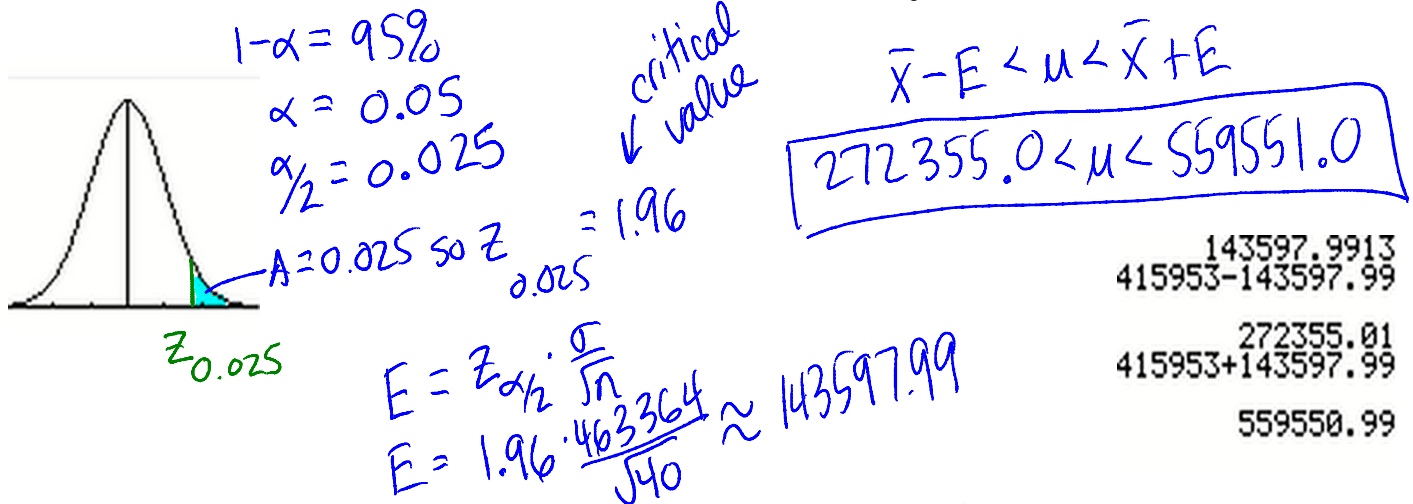 1-α = 95%
α = 0.05
α/2 = 0.025
A = 0.025 so z_0.025 = 1.96
critical
value
↓
z_0.025
E = z_α/2 · σ/√n
E = 1.96 · 463364/√40 ≈ 143597.99
x̄-E < μ < x̄+E
272355.0 < μ < 559551.0
143597.9913
415953-143597.99
272355.01
415953+143597.99
559550.99